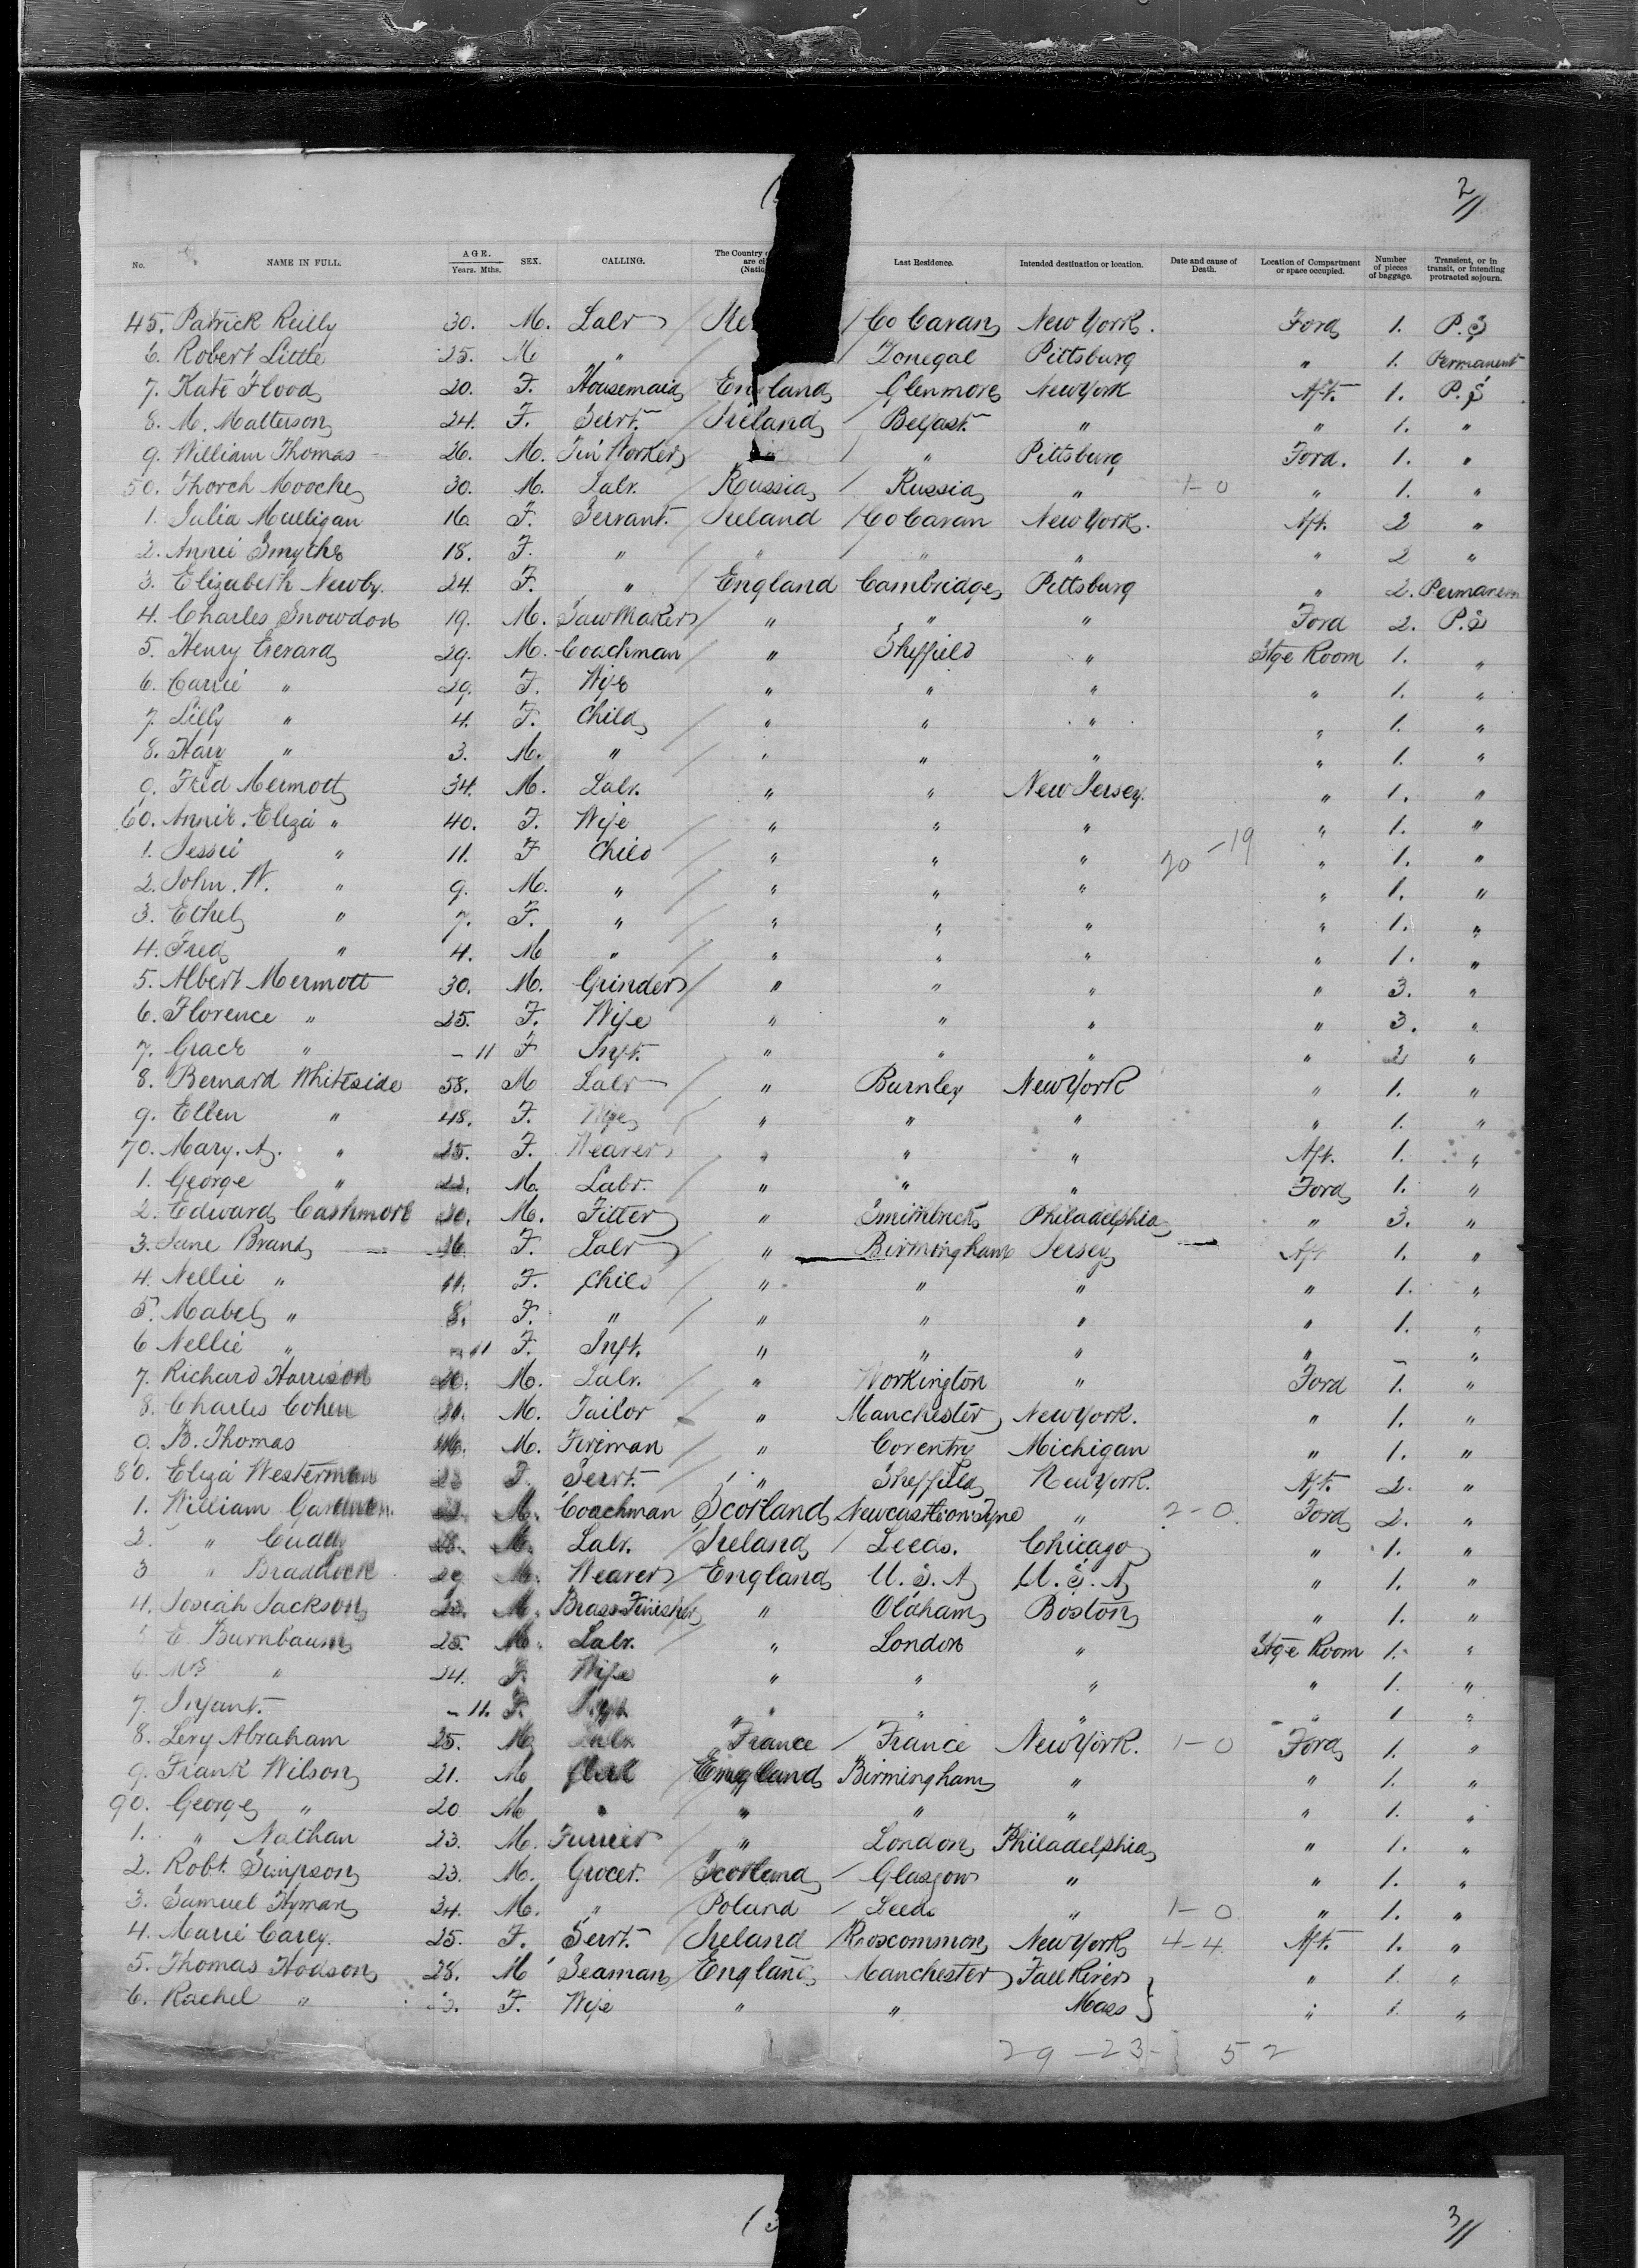 2/11
No. NAME IN FULL. AGE. Years. Mths. SEX. CALLING. The Country Last Residence. Intended destination or location. Date and cause of Death. Location of Compartment or space occupied. Number of pieces of baggage. Transient, or in transit, or intending protracted sojourn.
45. Patrick Reilly 30. M. Labr / Co Cavan New York. Ford 1. P.S
6. Robert Little 25. M " Donegal Pittsburg " 1. Permanent
7. Kate Flood 20. F. Housemaid England Glenmore New York Aft. 1. P.S
8. M. Matterson 24. F. Servt. Ireland / Belfast " " 1. "
9. William Thomas 26. M. Tin Worker / " Pittsburg Ford. 1. "
50. Thorch Mooche 30. M. Labr. Russia / Russia " 1-0 " 1. "
1. Julia Mulligan 16. F. Servant. Ireland / Co Cavan New York. Aft. 2 "
2. Annie Smythe 18. F. " " / " " " 2 "
3. Elizabeth Newby. 24. F. " England Cambridge Pittsburg " 2. Permanen
4. Charles Snowdon 19. M. Saw Maker / " " " Ford 2. P.S
5. Henry Everard 29. M. Coachman / " Sheffield " Stge Room 1. "
6. Carrie " 29. F. Wife / " " " " 1. "
7. Lilly " 4. F. Child / " " " " 1. "
8. Hary " 3. M. " / " " " " 1. "
9. Fred Mermott 34. M. Labr. / " " New Jersey. " 1. "
60. Annie. Eliza " 40. F. Wife / " " " " 1. "
1. Jessie " 11. F Child / " " " 20-19 " 1. "
2. John. W. " 9. M. " / " " " " 1. "
3. Ethel " 7. F. " / " " " " 1. "
4. Fred " 4. M " / " " " " 1. "
5. Albert Mermott 30. M. Grinder / " " " " 3. "
6. Florence " 25. F. Wife / " " " " 3. "
7. Grace " - 11 F Inft. / " " " " 3 "
8. Bernard Whiteside 58. M Labr / " Burnley New York " 1. "
9. Ellen " 48. F. Wife / " " " " 1. "
70. Mary. A. " 25. F. Weaver / " " " Aft. 1. "
1. George " 22. M. Labr. / " " " Ford 1. "
2. Edward Cashmore 20. M. Fitter / " Philadelphia " 3. "
3. Jane Brand 36. F. Labr / " Birmingham Jersey Aft 1. "
4. Nellie " 11. F. Child / " " " " 1. "
5. Mabel " 8. F. " / " " " " 1. "
6 Nellie " - 11 F. Inft. / " " " " - "
7. Richard Harrison M. Labr. / " Workington " Ford 1. "
8. Charles Cohen M. Tailor / " Manchester New York. " 1. "
9. B. Thomas M. Fireman / " Coventry Michigan " 1. "
80. Eliza Westerman F. Servt. / " Sheffield New York. Aft. 2. "
1. William Gardner. M. Coachman Scotland Newcastle on Tyne " 2-0. Ford 2. "
2. " Cuddy M. Labr. / Ireland / Leeds. Chicago " 1. "
3 " Braddock M. Weaver / England U.S.A U.S.A " 1. "
4. Josiah Jackson M. Brass Finisher " Oldham Boston " 1. "
5 E. Burnbaum 25. M. Labr. / " London " Stge Room 1. "
6. Mrs " 24. F. Wife " " " " 1. "
7. Infant. - 11. F. Inft. " " " " 1 "
8. Levy Abraham 25. M Labr. France / France New York. 1-0 Ford 1. "
9. Frank Wilson 21. M Clerk England Birmingham " " 1. "
90. George " 20 M " " " " " 1. "
1. " Nathan 23. M. Furrier " London Philadelphia " 1. "
2. Robt. Simpson 23. M. Grocer. Scotland / Glasgow " " 1. "
3. Samuel Hyman 34. M. " Poland / Leeds " 1-0 " 1. "
4. Marie Carey. 25. F. Servt. Ireland / Roscommon New York 4-4. Aft. 1. "
5. Thomas Hodson 28. M Seaman England Manchester Fall River } " 1. "
6. Rachel " F. Wife " " Mass } " 1. "
29-23- 52
(3
3/11